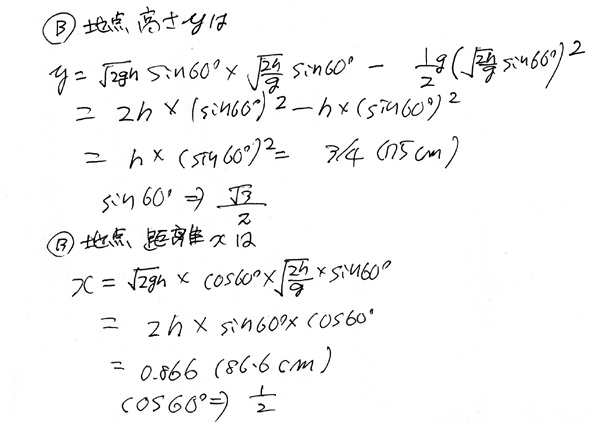 Ⓑ 地点 高さ y は
y = √2gh sin60° × √2h/g sin60° − 1/2 g (√2h/g sin60°)2
= 2h × (sin60°)2 − h × (sin60°)2
= h × (sin60°)2 = 3/4 (75cm)
sin60° ⇒ √3/2
Ⓑ 地点 距離 x は
x = √2gh × cos60° × √2h/g × sin60°
= 2h × sin60° × cos60°
= 0.866 (86.6cm)
cos60° ⇒ 1/2